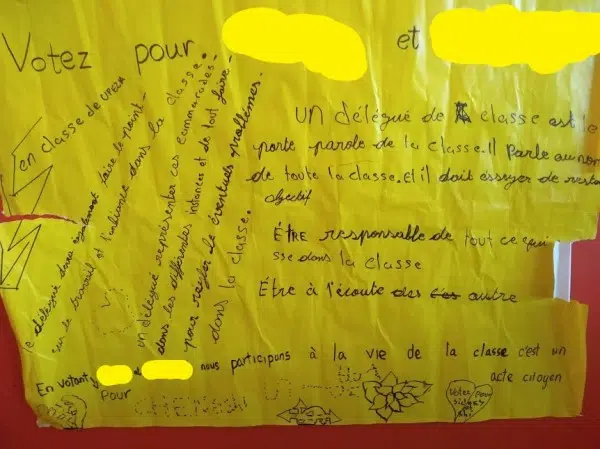 Votez pour et
en classe de UPE2A
le délégué devra également faire le point
sur le travail et l'ambiance dans la classe.
un délégué représenter ces cammarades
dans les différentes instances et de tout faire
pour regler le éventuels problemes.
dans la classe.
un délégué de classe est le
porte parole de la classe.Il parle au nom
de toute la classe.Et il doit essayer de rester
objectif
ÊTRE responsable de tout ce qui
sse dans la classe
Être à l'écoute des autre
En votant
pour
nous participons à la vie de la classe c'est un
acte citoyen
Votez pour